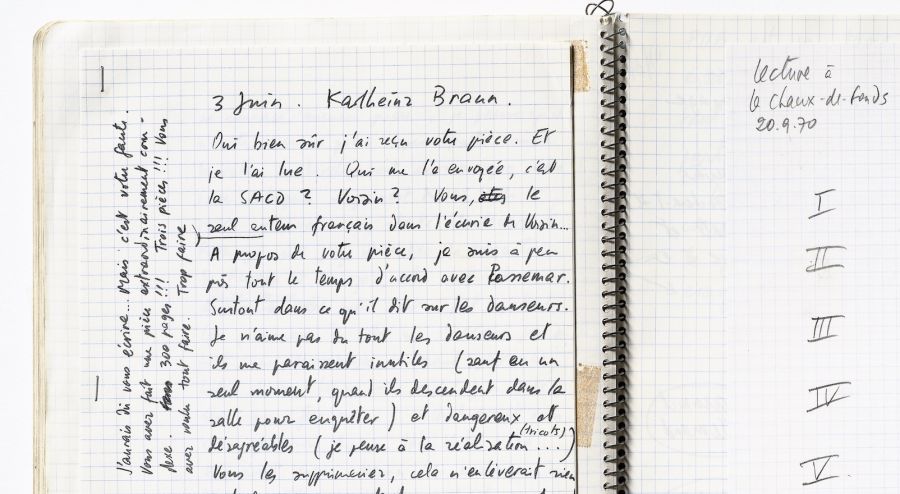 3 Juin. Karlheinz Braun.
Oui bien sûr j'ai reçu votre pièce. Et
je l'ai lue. Qui me l'a envoyée, c'est
la SACD ? Voisin ? Vous, le
seul auteur français dans l'écurie de Voisin...
A propos de votre pièce, je suis à peu
près tout le temps d'accord avec Rossemar.
Surtout dans ce qu'il dit sur les danseurs.
Je n'aime pas du tout les danseurs et
ils me paraissent inutiles (sauf en un
seul moment, quand ils descendent dans la
salle pour enquêter) et dangereux et
désagréables (je pense à la réalisation...)
(tricots)
Vous les supprimeriez, cela n'enlèverait rien
J'aurais dû vous écrire... Mais c'est votre faute.
Vous avez fait une pièce extraordinairement com-
plexe. 300 pages !!! Trois pièces !!! Vous
avez voulu tout faire. Trop faire
Lecture à
la Chaux-de-Fonds
20.9.70
I
II
III
IV
V.